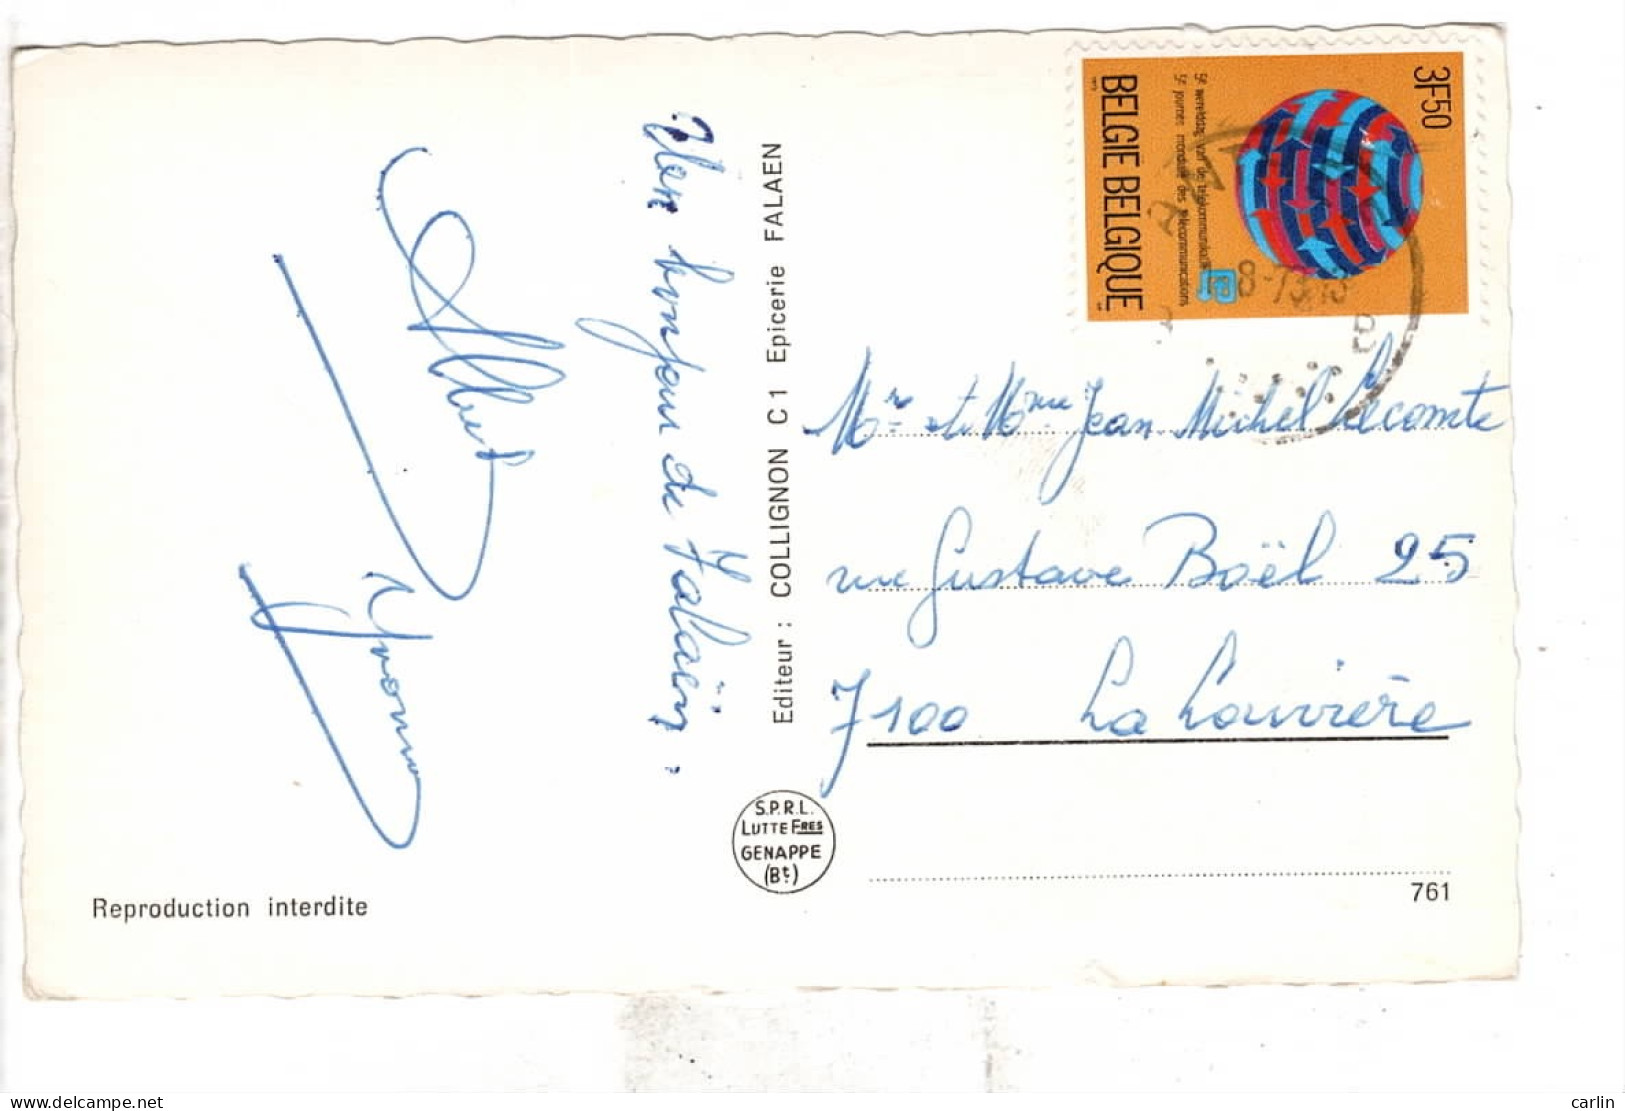 Un bonjour de Falaën.
Albert
Yvonne
Reproduction interdite
Editeur : COLLIGNON C1 Epicerie FALAEN
S.P.R.L.
LUTTE FRES
GENAPPE
(Bt.)
3F50
5e werelddag van de telekommunikatie
5e journée mondiale des télécommunications
BELGIE BELGIQUE
8-73
Mr et Mme Jean Michel Lecomte
rue Gustave Boël 25
7100 La Louvière
761
www.delcampe.net
carlin